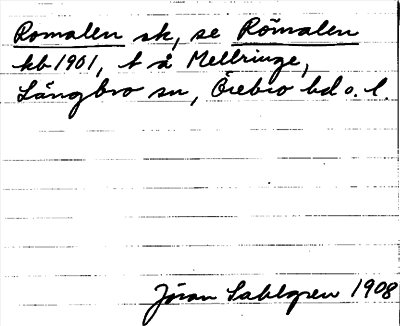 Romalen sk, se Römalen
kb 1901, t å Mellringe,
Längbro sn, Örebro hd o. l.
Jöran Sahlgren 1908